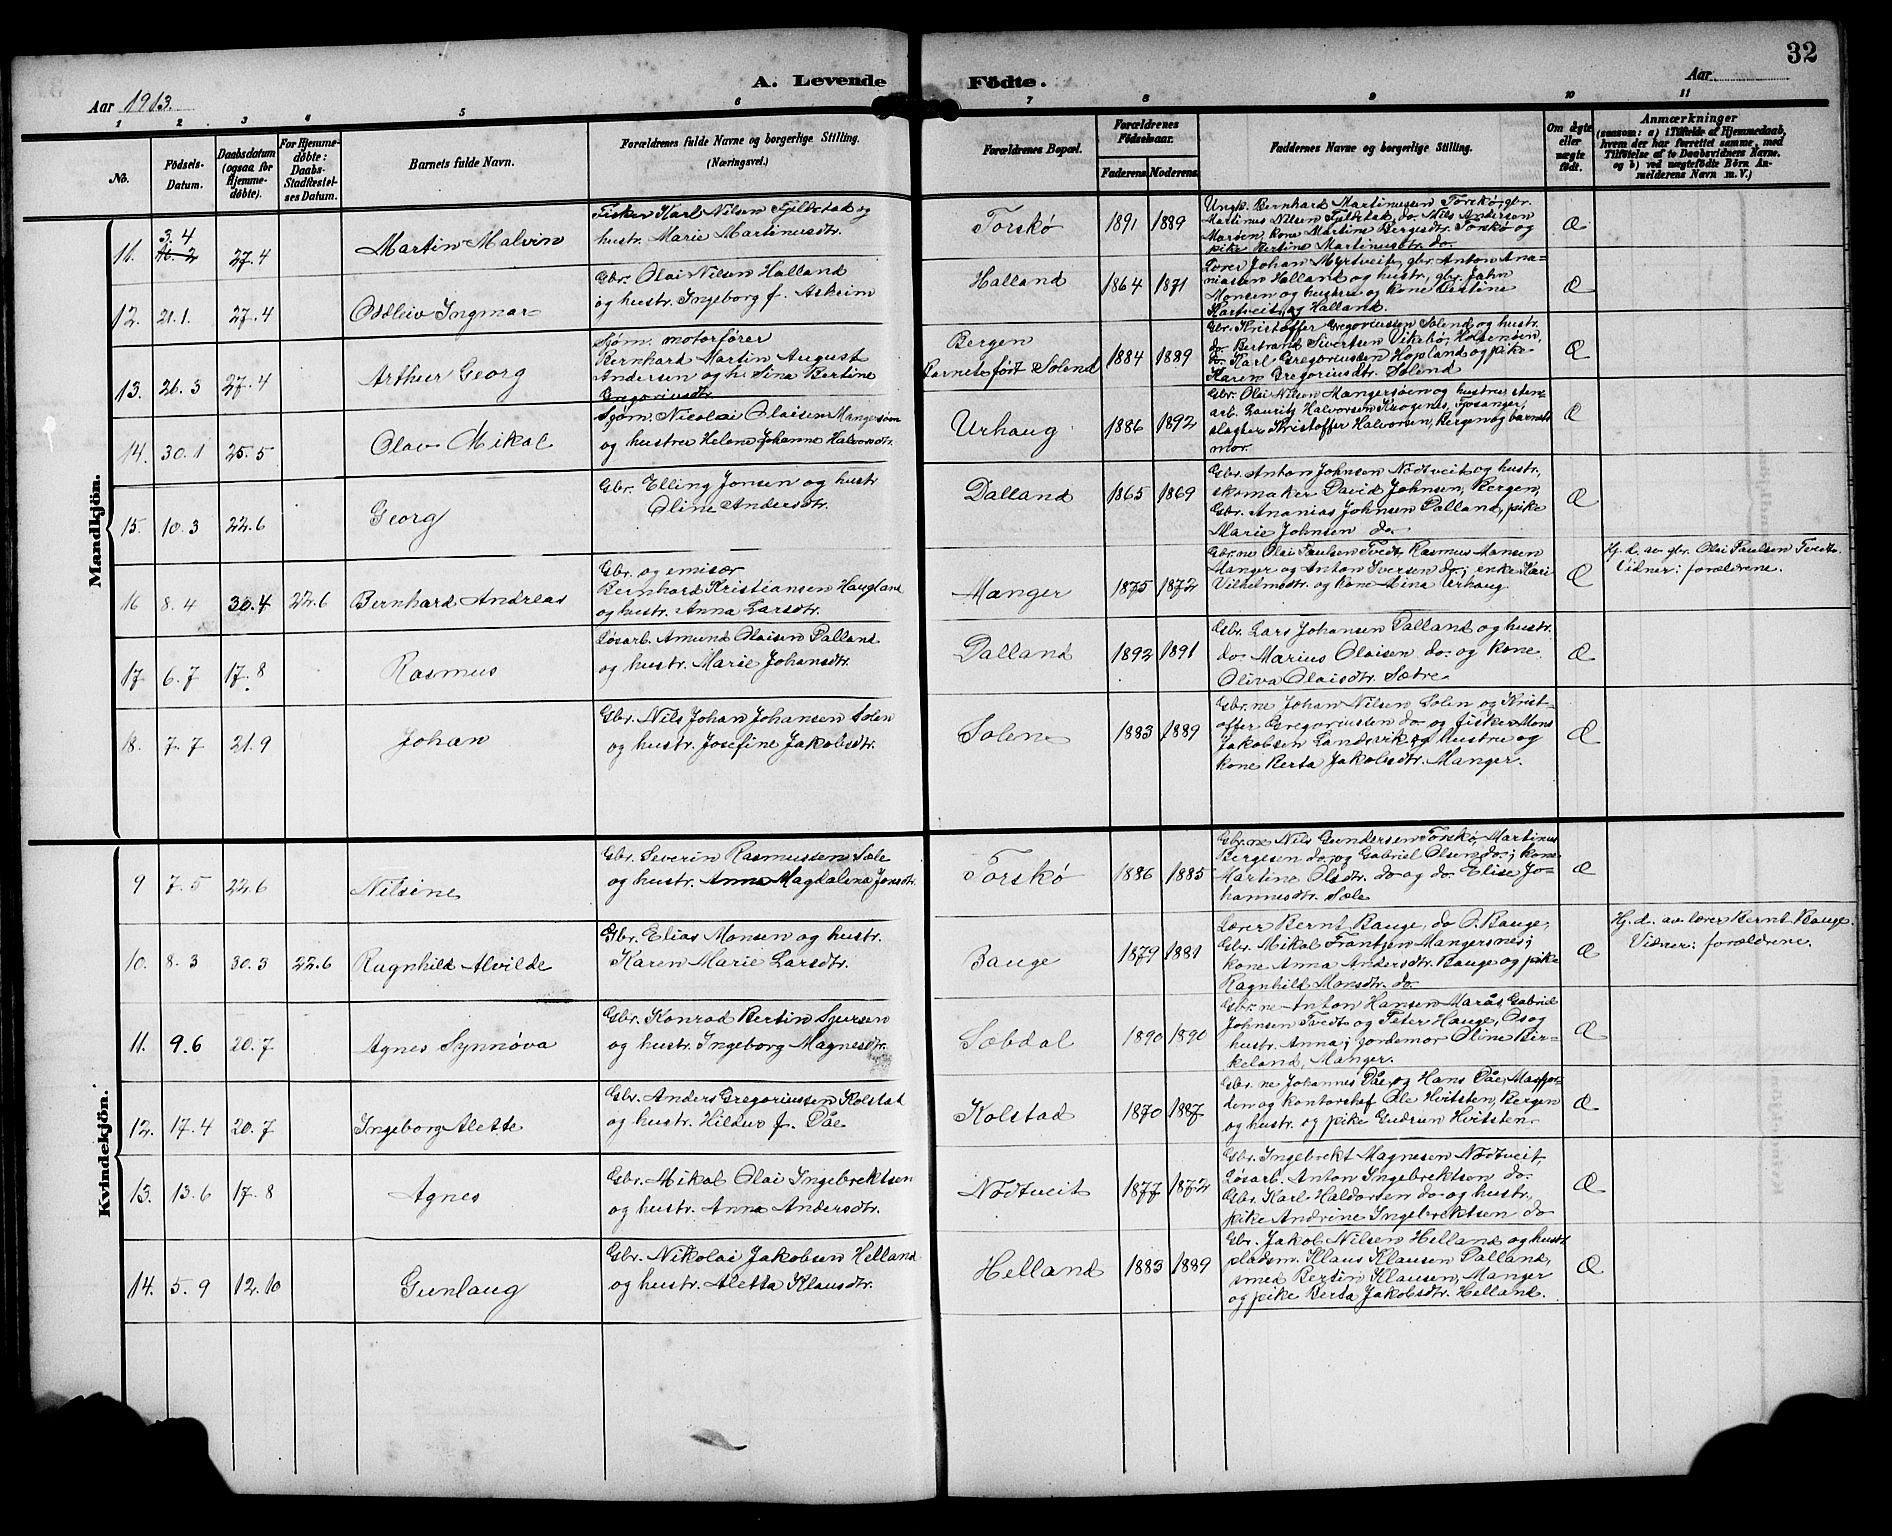 32
A. Levende Födte.
Aar 1913.
Aar
1 2 3 4 5 6 7 8 9 10 11
No.
Födsels-
Datum.
Daabsdatum
(ogsaa for
Hjemme-
döbte).
For Hjemme-
döbte:
Daabs-
Stadfæstel-
ses Datum.
Barnets fulde Navn.
Forældrenes fulde Navne og borgerlige Stilling.
(Næringsvei.)
Forældrenes Bopæl.
Forældrenes
Födselsaar.
Faderens Moderens
Faddernes Navne og borgerlige Stilling.
Om ægte
eller
uægte
født.
Anmærkninger
(saasom: a) i Tilfælde af Hjemmedaab,
hvem der har forrettet samme, med
Tilföielse af to Daabsvidners Navne,
og b) ved uægtefödte Börn An-
melderens Navn m. V.)
Mandkjön.
11. 3.4 27.4 Martin Malvin
Fisker Karl Nilsen Fjeldstad og
hustr. Marie Martinusdtr.
Torskø 1891 1889
Ungk. Bernhard Martinusen Torskø, gbr.
Martinus Nilsen Fjeldstad, do. Nils Andersen
Marøen, kone Martine Bergesdtr. Torskø og
pike Bertine Martinusdtr. do.
Æ
12. 21.1. 27.4 Oddleiv Ingmar
Gbr. Olai Nilsen Halland
og hustr. Ingeborg f. Askeim
Halland 1864 1871
Lærer Johan Myrtveit, gbr. Anton Ana-
niassen Halland og hustr., gbr. John
Monsen og hustru og kone Kristine
Hartveit, og Halland.
Æ
13. 26.3 27.4 Arthur Georg
Sjøm. motorfører
Bernhard Martin August
Andersen og h. Sina Bertine
Gregoriusdtr.
Bergen
Barnet født Solend 1884 1889
Gbr. Kristoffer Gregoriussen Solend og hustr.
do. Bertrant Sivertsen Vikebø, Holsenøen,
do. Karl Gregoriussen Hopland og pike
Karen Gregoriusdtr. Solend
Æ
14. 30.1 25.5 Olav Mikal
Sjøm. Nicolai Olaisen Mangersøen
og hustru Helene Johanne Halvorsdtr.
Urhaug 1886 1892
Gbr. Olai Nilsen Mangersøen og hustru, sten-
arb. Lauritz Halvorsen Krogenes, Fosanger,
slagter Kristoffer Halvorsen, Bergen og barnets
mor.
Æ
15. 10.3 22.6 Georg
Gbr. Elling Jonsen og hustr
Oline Andersdtr.
Dalland 1865 1869
Gbr. Anton Johnsen Nødtveit og hustr.,
skomaker David Johnsen, Bergen,
Gbr. Ananias Johnsen Dalland, pike
Marie Johnsen do.
Æ
16 8.4 30.4 22.6 Bernhard Andreas
Gbr. og emisær
Bernhard Kristiansen Haugland
og hustr. Anna Larsdtr.
Manger 1875 1872
Gbr.ne Olai Paulsen Tvedt, Rasmus Hansen
Manger og Anton Iversen do; enke Kari
Vilhelmsdtr. og kone Aina Urhaug
Æ
Hj. d. av gbr. Olai Paulsen Tvedt.
Vidner: forældrene.
17 6.7 17.8 Rasmus
Løsarb. Amund Olaisen Dalland
og hustr. Marie Johansdtr.
Dalland 1892 1891
Gbr. Lars Johansen Dalland og hustr.
do. Marius Olaisen do. og kone
Oliva Olaisdtr. Sætre
Æ
18. 7.7 21.9 Johan
Gbr. Nils Johan Johansen Solen
og hustr. Josefine Jakobsdtr.
Solen 1883 1889
Gbr.ne Johan Nilsen Solen og Krist-
offer Gregoriussen do. og fisker Mons
Jakobsen Landsvik og hustru og
kone Berta Jakobsdtr. Manger.
Æ
Kvindekjön.
9 7.5 22.6 Nilsine
Gbr. Severin Rasmussen Sæle
og hustr. Anna Magdalena Jonsdtr.
Torskø 1886 1885
Gbr.ne Nils Gundersen Torskø, Martinus
Bergesen do. og Gabriel Olsen do.; kone
Martine Olsdtr. do og do. Elise Jo-
hannesdtr. Sæle
Æ
10. 8.3 30.3 22.6 Ragnhild Alvilde
Gbr. Elias Monsen og hustr.
Karen Marie Larsdtr.
Bauge 1879 1881
Lærer Bernt Bauge, do O. Bauge,
Gbr. Mikal Frantzen Mangersnes;
kone Anna Andersdtr. Bauge og pike
Ragnhild Monsdtr. do.
Æ
Hj. d. av lærer Bernt Bauge.
Vidner: forældrene.
11. 9.6 20.7 Agnes Synnøva
Gbr. Konrad Bertin Sjursen
og hustr. Ingeborg Magnesdtr.
Sæbdal 1890 1890
Gbr.ne Anton Hansen Marås, Gabriel
Johnsen Tvedt og Peter Hauge, Os og
hustr. Anna; jordemor Oline Bir-
keland, Manger.
Æ
12. 17.4 20.7 Ingeborg Alette
Gbr. Anders Gregoriussen Kolstad
og hustr. Hildur f. Dåe
Kolstad 1870 1887
Gbr.ne Johannes Dåe, og Hans Dåe, Masfjor-
den og kontorchef Ole Hvitsten, Bergen
og hustr. og pike Gudrun Hvitsten.
Æ
13. 13.6 17.8 Agnes
Gbr. Mikal Olai Ingebrektsen
og hustr. Anna Andersdtr.
Nødtveit 1877 1872
Gbr. Ingebrekt Magnesen Nødtveit,
Løsarb. Anton Ingebrektsen do.
Gbr. Karl Haldorsen do og hustr.,
pike Andrine Ingebrektsen do
Æ
14. 5.9 12.10 Gunlaug
Gbr. Nikolai Jakobsen Helland
og hustr. Aletta Klausdtr.
Helland 1883 1889
Gbr. Jakob Nilsen Helland og hust.
pladsm. Klaus Klausen Dalland,
smed Bertin Klausen, Manger
og pike Berta Jakobsdtr. Helland.
Æ